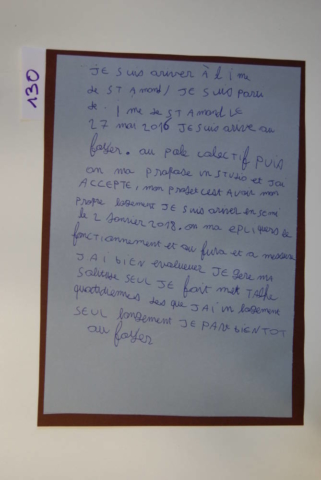 130
JE SUIS arriver À l'ime
de ST Amond / JE SUIS paru
de l ime de ST Amond le
27 mai 2016 JE suis arrive au
foyer. au pole colectif PUIS
on ma propose un STUDIO et J'ai
ACCEPTE, mon projet c'est Avoir mon
propre logement JE SUIS arriver en
le 2 Janvier 2018. on ma epliquer le
fonctionnement et au fura et a mesure
J'AI BIEN evaluer JE Gere ma
Solitude SEUL JE fait met TACHE
quotidiennes des que J'AI un logement
SEUL JE PAR BIENTOT
au foyer